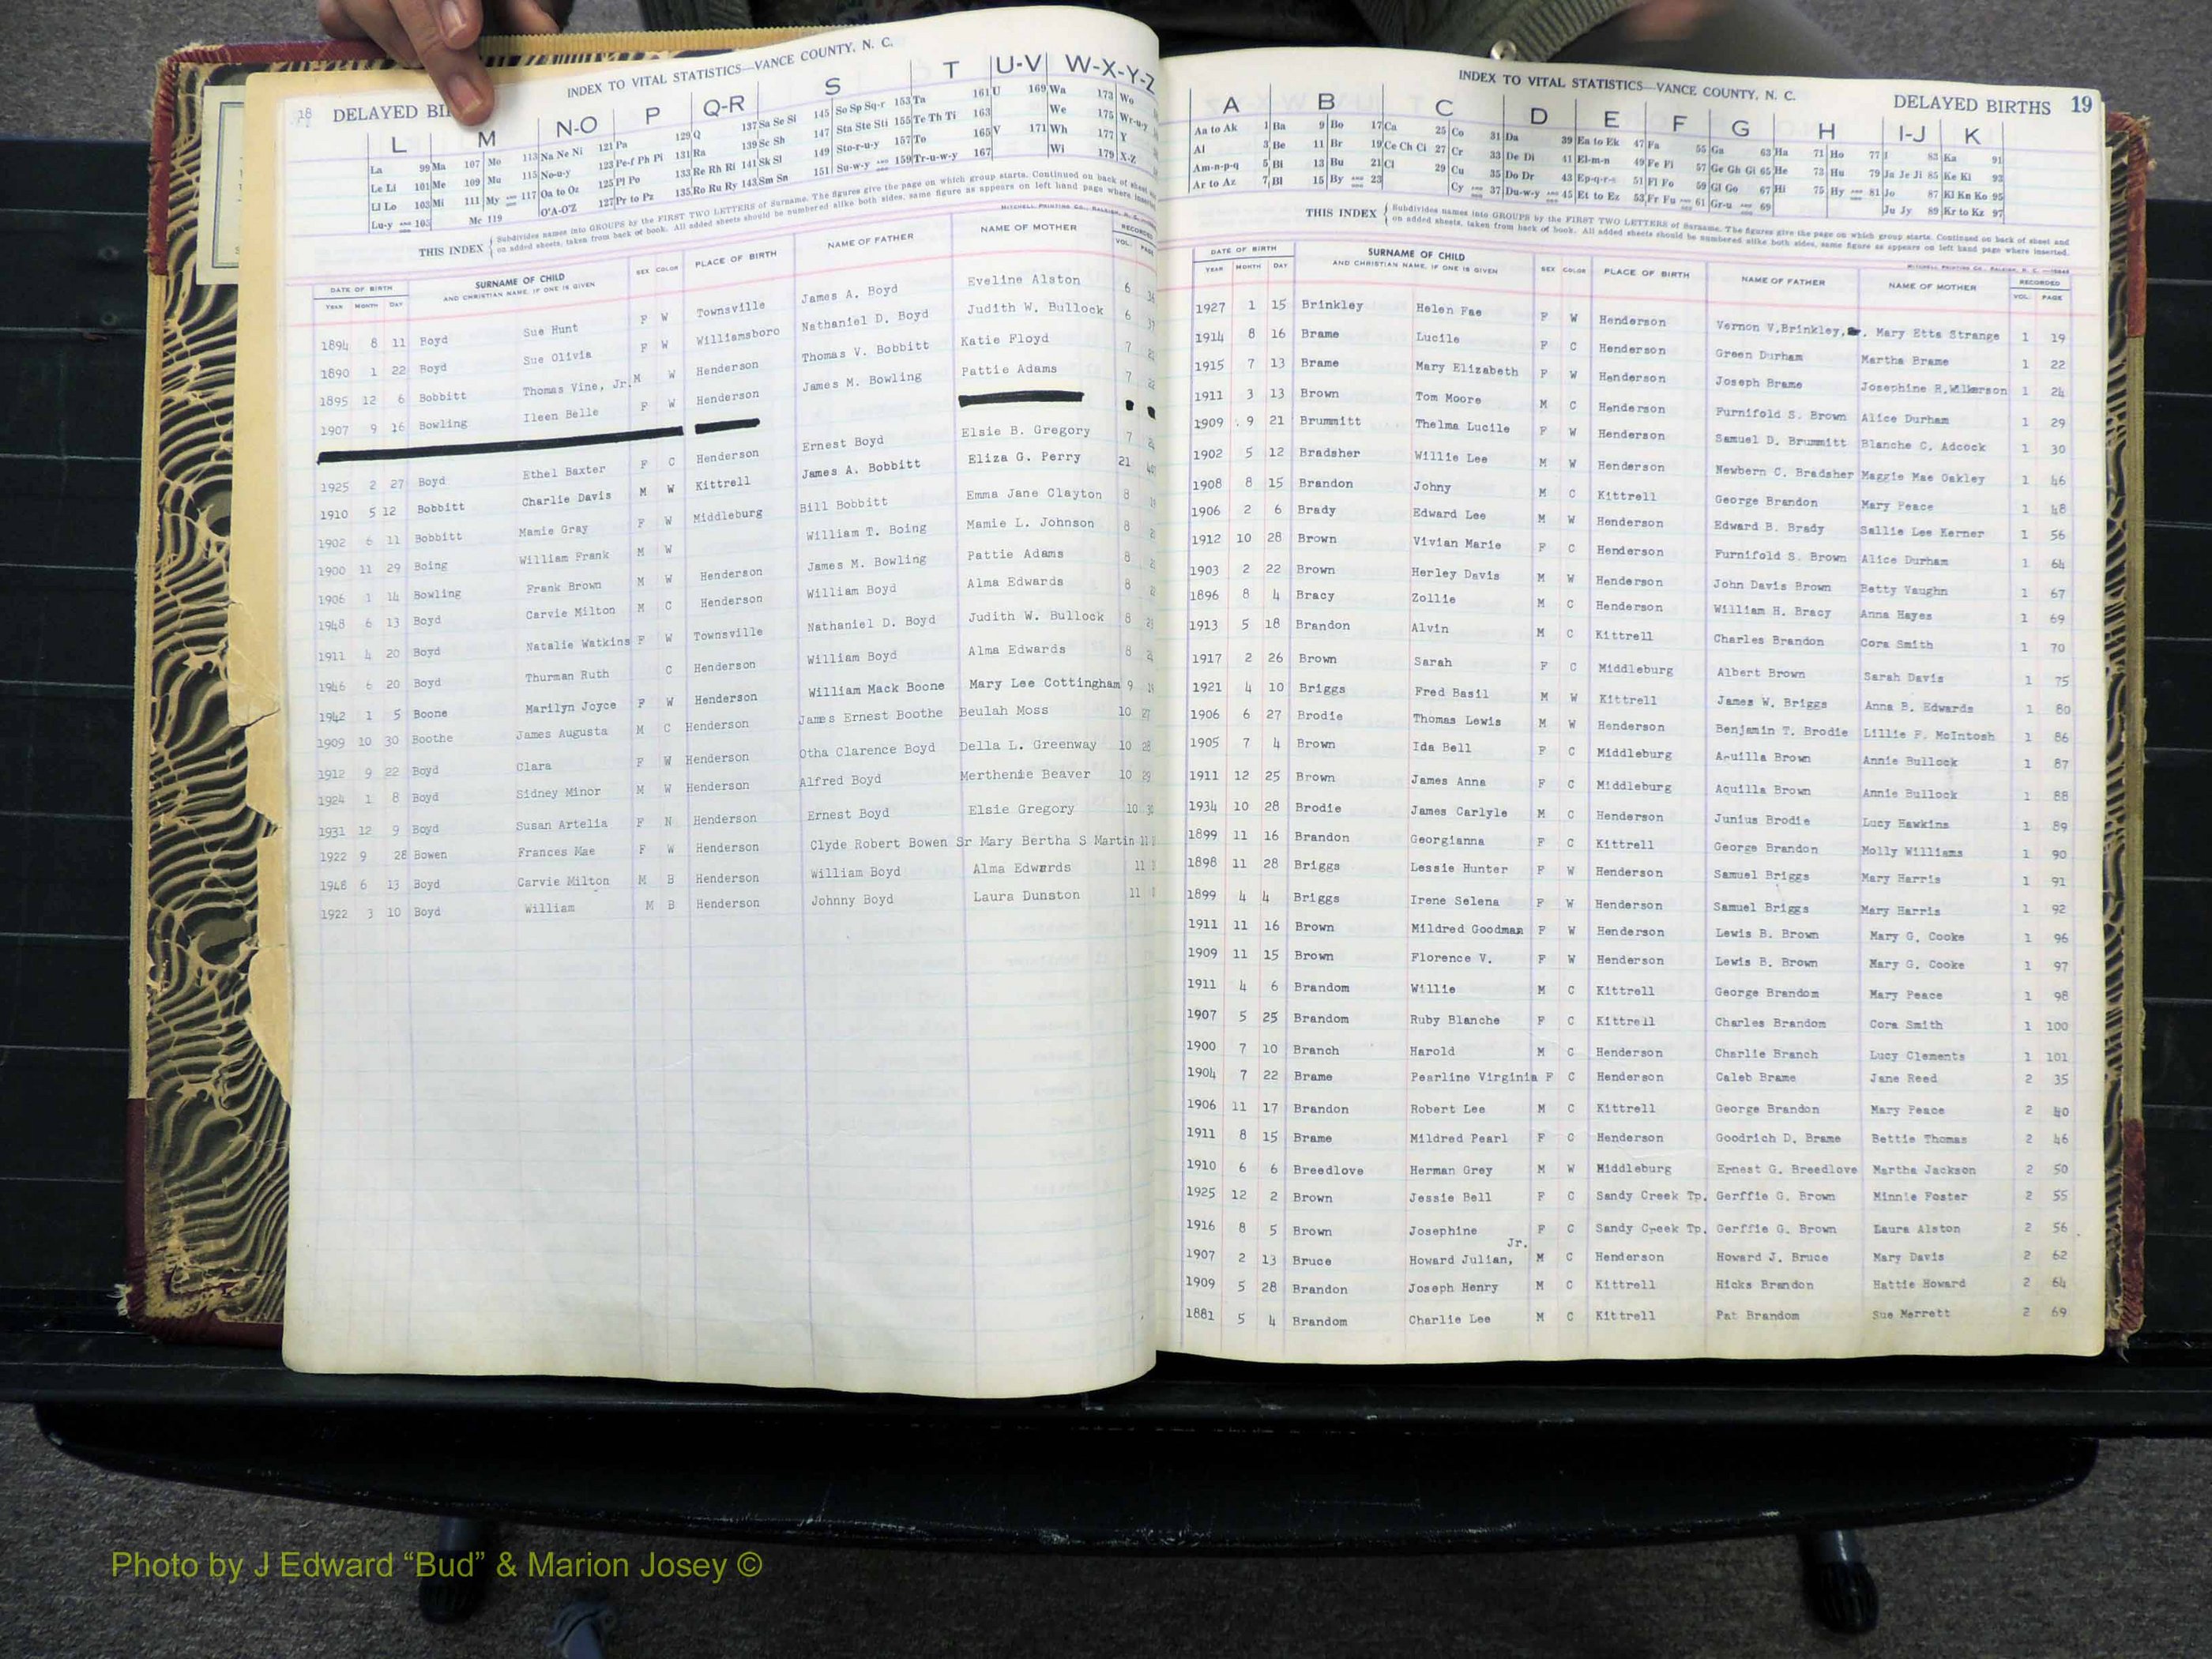 18 DELAYED BI
INDEX TO VITAL STATISTICS—VANCE COUNTY, N. C.
L M N-O P Q-R S T U-V W-X-Y-Z
La 99 Ma 107 Mo 113 Na Ne Ni 121 Pa 129 Q 137 Sa Se Si 145 So Sp Sq-r 153 Ta 161 U 169 Wa 173 Wo
Le Li 101 Me 109 Mu 115 No-u-y 123 Pe-f Ph Pi 131 Ra 139 Sc Sh 147 Sta Ste Sti 155 Te Th Ti 163 We 175 Wr-u-y
Ll Lo 103 Mi 111 My 117 Oa to Oz 125 Pl Po 133 Re Rh Ri 141 Sk Sl 149 Sto-r-u-y 157 To 165 V 171 Wh 177 Y
Lu-y 105 Mc 119 O'A-O'Z 127 Pr to Pz 135 Ro Ru Ry 143 Sm Sn 151 Su-w-y 159 Tr-u-w-y 167 Wi 179 X-Z
THIS INDEX { Subdivides names into GROUPS by the FIRST TWO LETTERS of Surname. The figures give the page on which group starts. Continued on back of sheet
on added sheets, taken from back of book. All added sheets should be numbered alike both sides, same figure as appears on left hand page where inserted.
DATE OF BIRTH SURNAME OF CHILD SEX COLOR PLACE OF BIRTH NAME OF FATHER NAME OF MOTHER RECORDED
YEAR MONTH DAY AND CHRISTIAN NAME, IF ONE IS GIVEN VOL. PAGE
1894 8 11 Boyd Sue Hunt F W Townsville James A. Boyd Eveline Alston 6
1890 1 22 Boyd Sue Olivia F W Williamsboro Nathaniel D. Boyd Judith W. Bullock 6
1895 12 6 Bobbitt Thomas Vine, Jr. M W Henderson Thomas V. Bobbitt Katie Floyd 7
1907 9 16 Bowling Ileen Belle F W Henderson James M. Bowling Pattie Adams 7
1925 2 27 Boyd Ethel Baxter F C Henderson Ernest Boyd Elsie B. Gregory 7
1910 5 12 Bobbitt Charlie Davis M W Kittrell James A. Bobbitt Eliza G. Perry 21
1902 6 11 Bobbitt Mamie Gray F W Middleburg Bill Bobbitt Emma Jane Clayton 8
1900 11 29 Boing William Frank M W William T. Boing Mamie L. Johnson 8
1906 1 14 Bowling Frank Brown M W Henderson James M. Bowling Pattie Adams 8
1948 6 13 Boyd Carvie Milton M C Henderson William Boyd Alma Edwards 8
1911 4 20 Boyd Natalie Watkins F W Townsville Nathaniel D. Boyd Judith W. Bullock 8
1946 6 20 Boyd Thurman Ruth C Henderson William Boyd Alma Edwards 8
1942 1 5 Boone Marilyn Joyce F W Henderson William Mack Boone Mary Lee Cottingham 9
1909 10 30 Boothe James Augusta M C Henderson James Ernest Boothe Beulah Moss 10 27
1912 9 22 Boyd Clara F W Henderson Otha Clarence Boyd Della L. Greenway 10 28
1924 1 8 Boyd Sidney Minor M W Henderson Alfred Boyd Merthenie Beaver 10 29
1931 12 9 Boyd Susan Artelia F N Henderson Ernest Boyd Elsie Gregory 10
1922 9 28 Bowen Frances Mae F W Henderson Clyde Robert Bowen Sr Mary Bertha S Martin 11
1948 6 13 Boyd Carvie Milton M B Henderson William Boyd Alma Edwards 11
1922 3 10 Boyd William M B Henderson Johnny Boyd Laura Dunston 11
INDEX TO VITAL STATISTICS—VANCE COUNTY, N. C.
DELAYED BIRTHS 19
A B C D E F G H I-J K
Aa to Ak 1 Ba 9 Bo 17 Ca 25 Co 31 Da 39 Ea to Ek 47 Fa 55 Ga 63 Ha 71 Ho 77 I 83 Ka 91
Al 3 Be 11 Br 19 Ce Ch Ci 27 Cr 33 De Di 41 El-m-n 49 Fe Fi 57 Ge Gh Gi 65 He 73 Hu 79 Ja Je Ji 85 Ke Ki 93
Am-n-p-q 5 Bi 13 Bu 21 Cl 29 Cu 35 Do Dr 43 Ep-q-r-s 51 Fl Fo 59 Gl Go 67 Hi 75 Hy 81 Jo 87 Kl Kn Ko 95
Ar to Az 7 Bl 15 By 23 Cy 37 Du-w-y 45 Et to Ez 53 Fr Fu 61 Gr-u 69 Ju Jy 89 Kr to Kz 97
THIS INDEX { Subdivides names into GROUPS by the FIRST TWO LETTERS of Surname. The figures give the page on which group starts. Continued on back of sheet and
on added sheets, taken from back of book. All added sheets should be numbered alike both sides, same figure as appears on left hand page where inserted.
DATE OF BIRTH SURNAME OF CHILD SEX COLOR PLACE OF BIRTH NAME OF FATHER NAME OF MOTHER RECORDED
YEAR MONTH DAY AND CHRISTIAN NAME, IF ONE IS GIVEN VOL. PAGE
1927 1 15 Brinkley Helen Fae F W Henderson Vernon V.Brinkley, Mary Etta Strange 1 19
1914 8 16 Brame Lucile F C Henderson Green Durham Martha Brame 1 22
1915 7 13 Brame Mary Elizabeth F W Henderson Joseph Brame Josephine R.Wilkerson 1 24
1911 3 13 Brown Tom Moore M C Henderson Furnifold S. Brown Alice Durham 1 29
1909 9 21 Brummitt Thelma Lucile F W Henderson Samuel D. Brummitt Blanche C. Adcock 1 30
1902 5 12 Bradsher Willie Lee M W Henderson Newbern C. Bradsher Maggie Mae Oakley 1 46
1908 8 15 Brandon Johny M C Kittrell George Brandon Mary Peace 1 48
1906 2 6 Brady Edward Lee M W Henderson Edward B. Brady Sallie Lee Kerner 1 56
1912 10 28 Brown Vivian Marie F C Henderson Furnifold S. Brown Alice Durham 1 64
1903 2 22 Brown Herley Davis M W Henderson John Davis Brown Betty Vaughn 1 67
1896 8 4 Bracy Zollie M C Henderson William H. Bracy Anna Hayes 1 69
1913 5 18 Brandon Alvin M C Kittrell Charles Brandon Cora Smith 1 70
1917 2 26 Brown Sarah F C Middleburg Albert Brown Sarah Davis 1 75
1921 4 10 Briggs Fred Basil M W Kittrell James W. Briggs Anna B. Edwards 1 80
1906 6 27 Brodie Thomas Lewis M W Henderson Benjamin T. Brodie Lillie F. McIntosh 1 86
1905 7 4 Brown Ida Bell F C Middleburg Aquilla Brown Annie Bullock 1 87
1911 12 25 Brown James Anna F C Middleburg Aquilla Brown Annie Bullock 1 88
1934 10 28 Brodie James Carlyle M C Henderson Junius Brodie Lucy Hawkins 1 89
1899 11 16 Brandon Georgianna F C Kittrell George Brandon Molly Williams 1 90
1898 11 28 Briggs Lessie Hunter F W Henderson Samuel Briggs Mary Harris 1 91
1899 4 4 Briggs Irene Selena F W Henderson Samuel Briggs Mary Harris 1 92
1911 11 16 Brown Mildred Goodman F W Henderson Lewis B. Brown Mary G. Cooke 1 96
1909 11 15 Brown Florence V. F W Henderson Lewis B. Brown Mary G. Cooke 1 97
1911 4 6 Brandom Willie M C Kittrell George Brandom Mary Peace 1 98
1907 5 25 Brandom Ruby Blanche F C Kittrell Charles Brandom Cora Smith 1 100
1900 7 10 Branch Harold M C Henderson Charlie Branch Lucy Clements 1 101
1904 7 22 Brame Pearline Virginia F C Henderson Caleb Brame Jane Reed 2 35
1906 11 17 Brandon Robert Lee M C Kittrell George Brandon Mary Peace 2 40
1911 8 15 Brame Mildred Pearl F C Henderson Goodrich D. Brame Bettie Thomas 2 46
1910 6 6 Breedlove Herman Grey M W Middleburg Ernest G. Breedlove Martha Jackson 2 50
1925 12 2 Brown Jessie Bell F C Sandy Creek Tp. Gerffie G. Brown Minnie Foster 2 55
1916 8 5 Brown Josephine F C Sandy Creek Tp. Gerffie G. Brown Laura Alston 2 56
Jr.
1907 2 13 Bruce Howard Julian, M C Henderson Howard J. Bruce Mary Davis 2 62
1909 5 28 Brandon Joseph Henry M C Kittrell Hicks Brandon Hattie Howard 2 64
1881 5 4 Brandom Charlie Lee M C Kittrell Pat Brandom Sue Merrett 2 69
Photo by J Edward “Bud” & Marion Josey ©